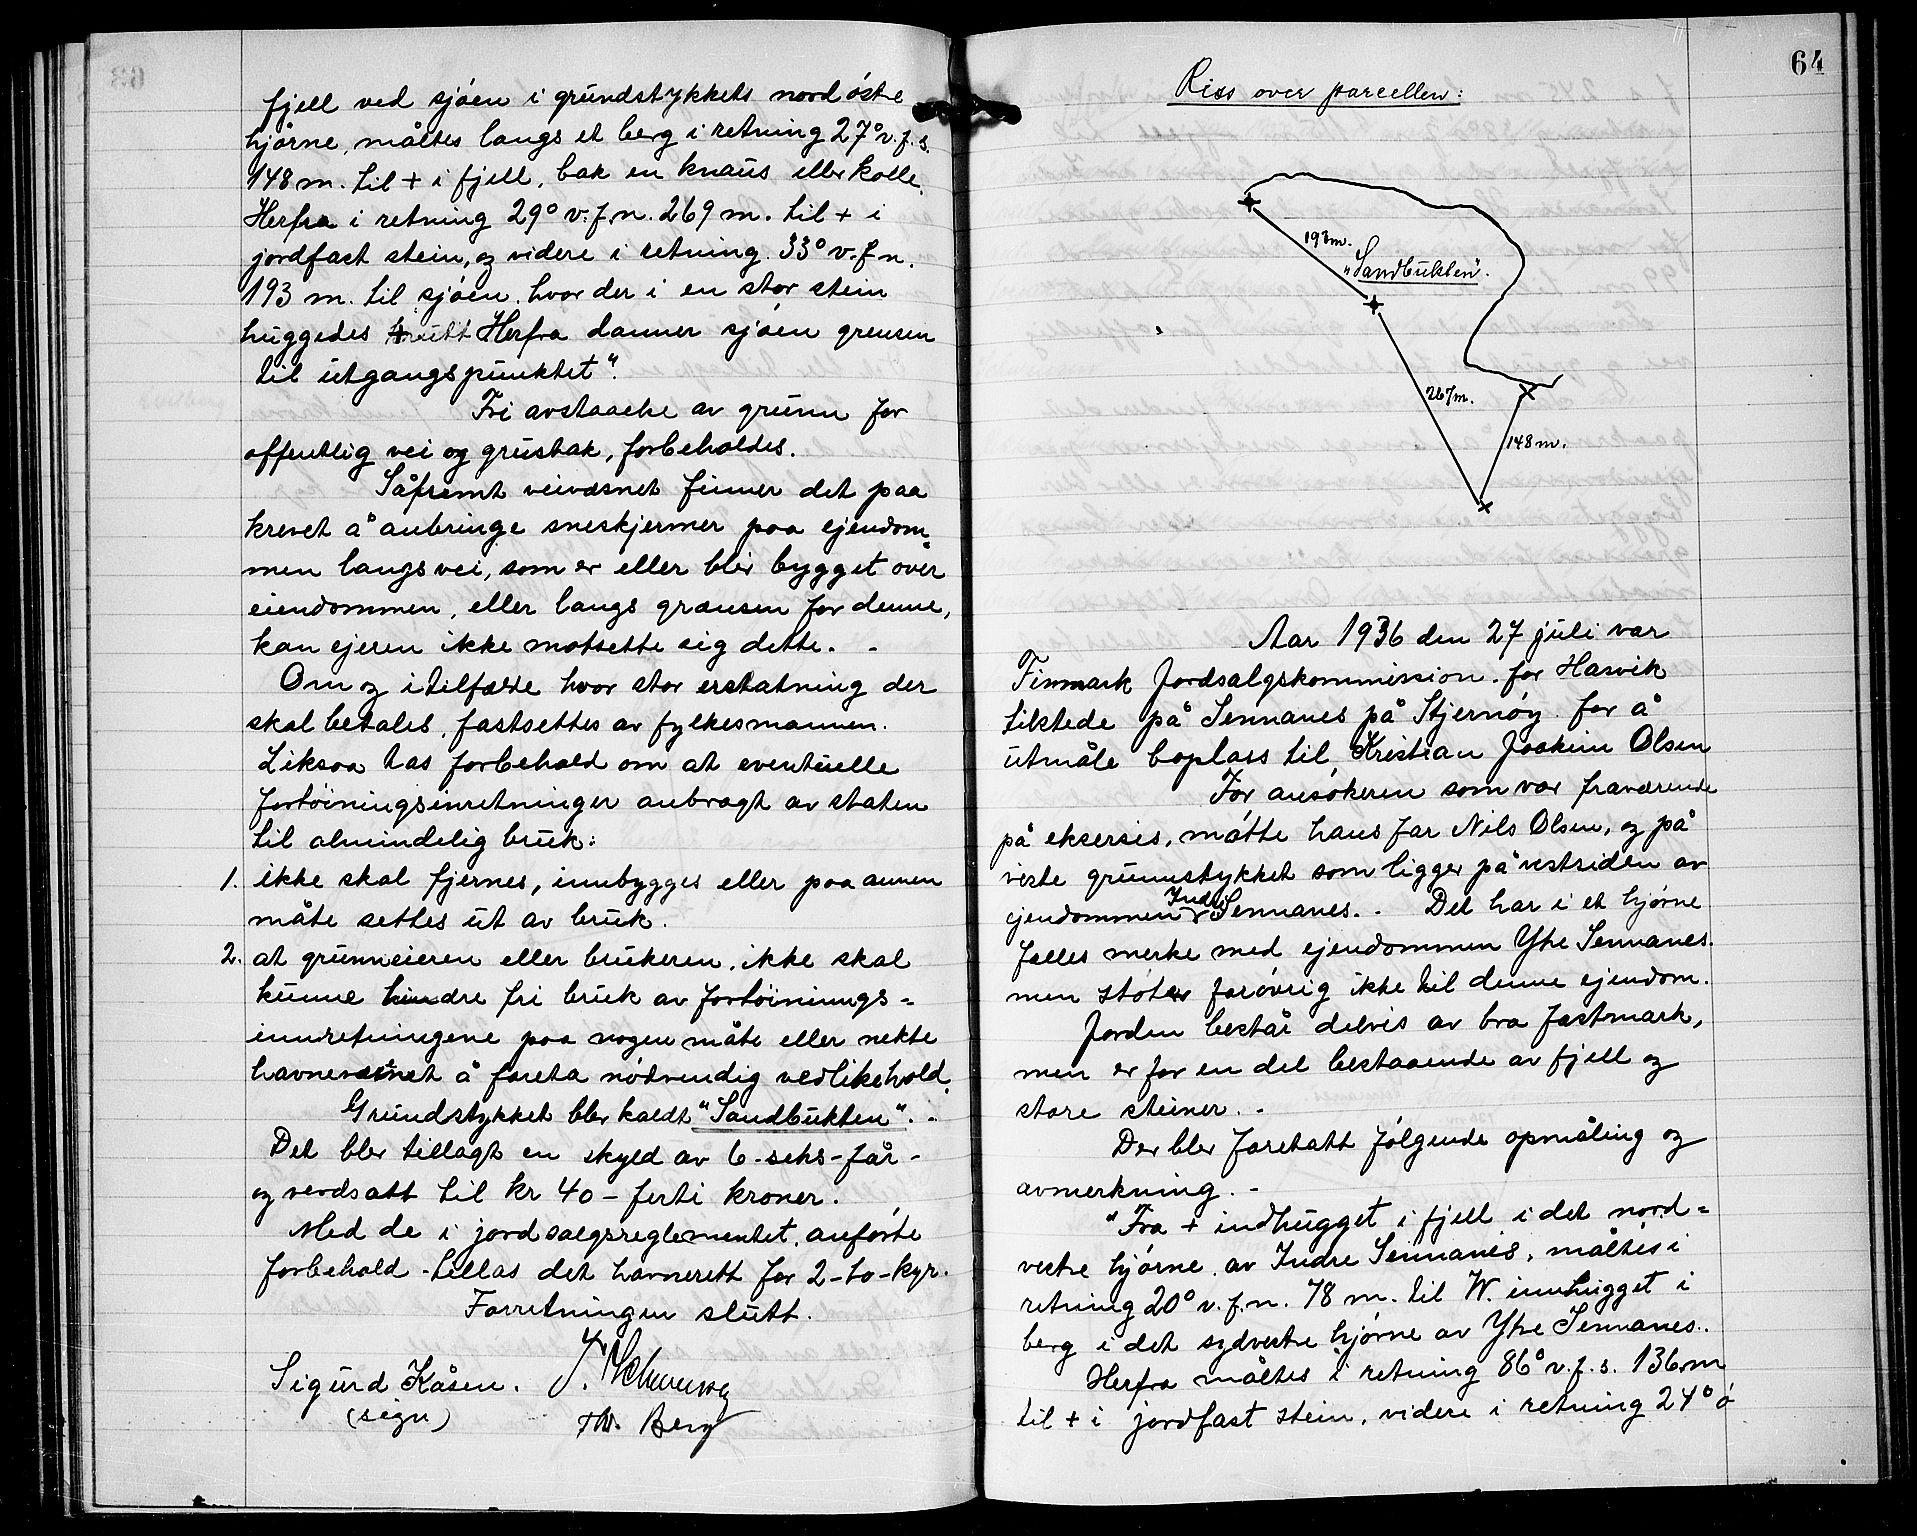 fjell ved sjøen i grundstykkets nordøstre
hjørne, måltes langs et berg i retning 27° v.f.s.
148 m. til + i fjell, bak en knaus eller kolle.
Herfra i retning 29° v.f.n. 269 m. til + i
jordfast stein, og videre i retning 33° v.f.n.
193 m. til sjøen, hvor der i en stor stein
huggedes Herfra danner sjøen grensen
til utgangspunktet".
Fri avstaaelse av grunn for
offentlig vei og grustak, forbeholdes.
Såfremt veivæsnet finner det paa
krevet å anbringe sneskjermer paa ejendom=
men langs vei, som er eller blir bygget over
eiendommen, eller langs grænsen for denne,
kan ejeren ikke motsette sig dette. -
Om og i tilfælde hvor stor erstatning der
skal betales, fastsettes av fylkesmannen.
Liksaa tas forbehold om at eventuelle
fortøiningsinretninger anbragt av staten
til almindelig bruk:
1. ikke skal fjernes, innbygges eller paa annen
måte settes ut av bruk.
2. at grunneieren eller brukeren, ikke skal
kunne hindre fri bruk av fortøinings=
innretningene paa nogen måte eller nekte
havnevæsnet å foreta nødvendig vedlikehold.
Grundstykket blev kaldt "Sandbukten". -
Det blev tillagt en skyld av 6-seks-før-
og verdsatt til kr 40 - førti kroner.
Med de i jordsalgsreglementet, anførte
forbehold - tillas det havnerett for 2-to-kyr.
Forretningen slutt.
Sigurd Kåsen.
(sign)
Th. Berg
64
Riss over parcellen:
193 m.
"Sandbukten".
267 m.
148 m.
Aar 1936 den 27 juli var
Finmark Jordsalgskommission for Hasvik
tilstede på Sennanes på Stjernøy for å
utmåle boplass til Kristian Joakim Olsen
For ansøkeren som var fraværende
på eksersis, møtte hans far Nils Olsen, og på
viste grunnstykket som ligger på vestsiden av
ejendommen Indre Sennanes. - Det har i et hjørne
felles merke med ejendommen Ytre Sennanes.
men støter forøvrig ikke til denne ejendom.
Jorden består delvis av bra fastmark,
men er for en del bestaaende av fjell og
store steiner. -
Der blev foretatt følgende opmåling og
avmerkning. -
"Fra + indhugget i fjell i det nord=
vestre hjørne av Indre Sennanes, måltes i
retning 20° v.f.n. 78 m. til W. innhugget i
berg i det sydvestre hjørne av Ytre Sennanes.
Herfra måltes i retning 86° v.f.s. 136 m
til + i jordfast stein, videre i retning 24° ø